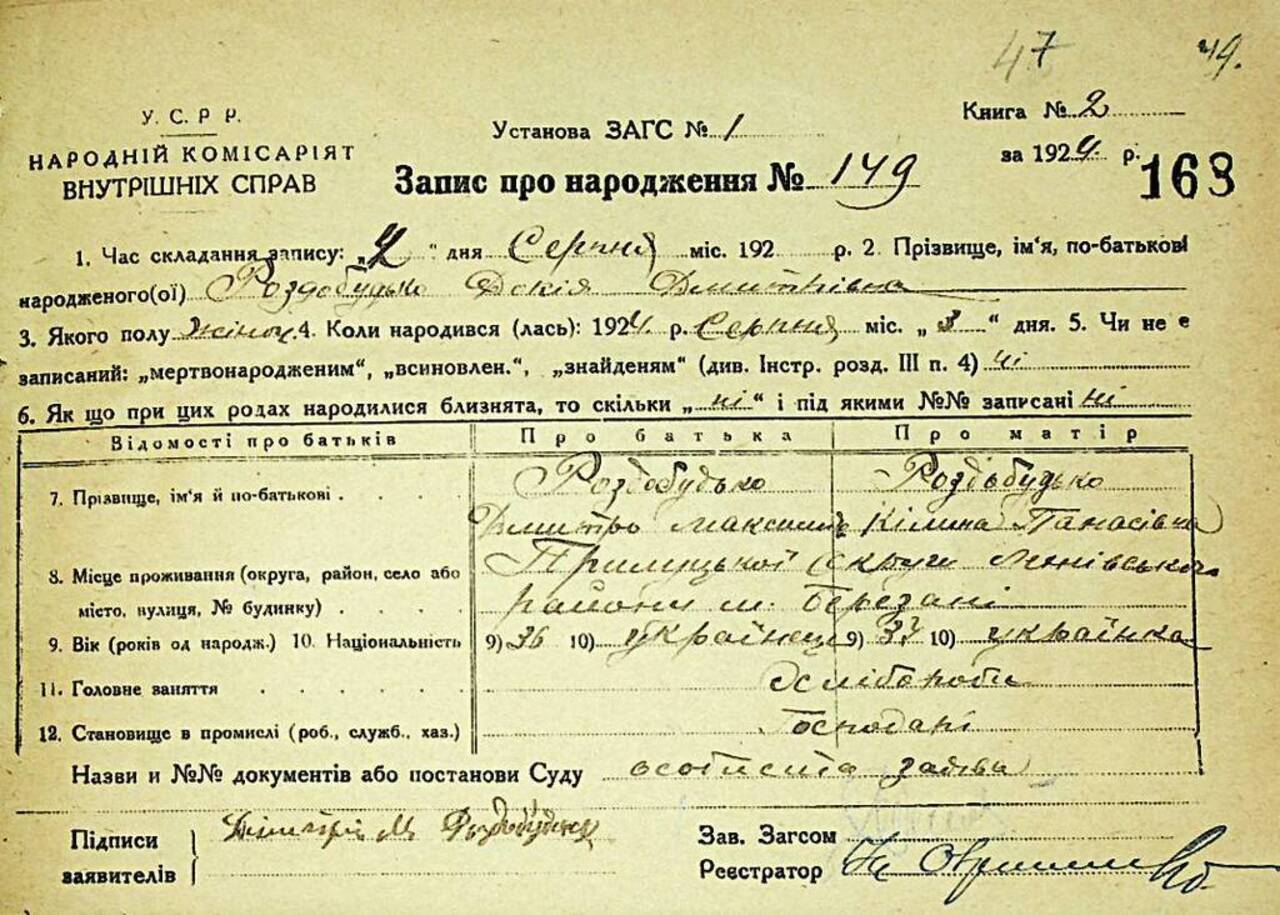 47 49.
У. С. Р. Р.
НАРОДНІЙ КОМІСАРІЯТ
ВНУТРІШНІХ СПРАВ
Установа ЗАГС № 1
Книга № 2
за 1924 р.
168
Запис про народження № 149
1. Час складання запису: „ “ дня Серпня міс. 192 р. 2. Прізвище, ім‘я, по-батькові
народженого(ої) Роздобудько Докія Дмитрівна
3. Якого полу жіноч. 4. Коли народився (лась): 1924 р. Серпня міс. „3“ дня. 5. Чи не є
записаний: „мертвонародженим“, „всиновлен.“, „знайденям“ (див. Інстр. розд. III п. 4) ні
6. Як що при цих родах народилися близнята, то скільки „ні“ і під якими №№ записані ні
Відомості про батьків Про батька Про матір
7. Прізвище, ім‘я й по-батькові Роздобудько Роздобудько
Дмитро Максим. Кілина Панасівна
8. Місце проживання (округа, район, село або Прилуцької округи
місто, вулиця, № будинку) району м. Березані
9. Вік (років од народж.) 10. Національність 9) 36 10) українець 9) 33 10) українка
11. Головне заняття Хлібороби
12. Становище в промислі (роб., служб., хаз.) Господарі
Назви и №№ документів або постанови Суду особиста заява
Підписи
заявителів
М Роздобудько
Зав. Загсом
Реєстратор